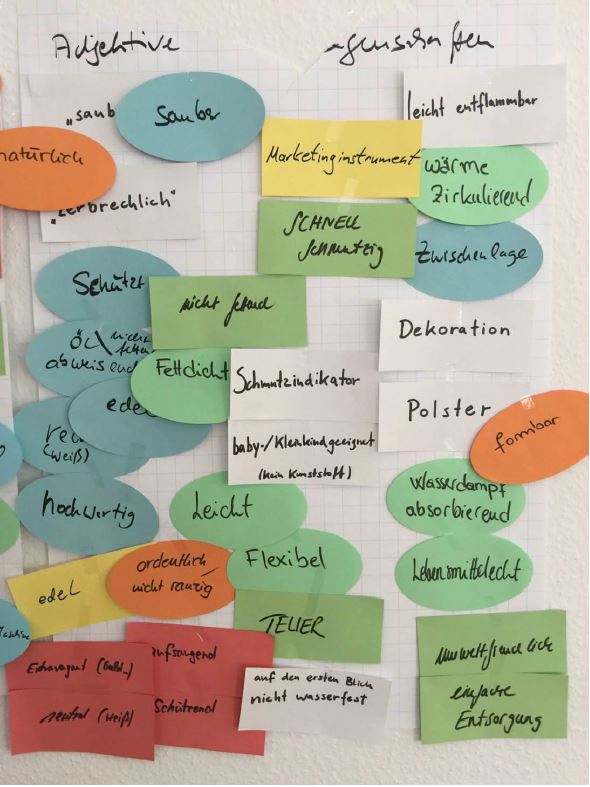 Adjektive
"saub
Sauber
leicht entflammbar
natürlich
Marketinginstrument
wärme
Zirkulierend
"zerbrechlich"
SCHNELL
schmutzig
Zwischenlage
Schützt
nicht fettend
Dekoration
ÖL
abweisend
Fettdicht
Schmutzindikator
Polster
formbar
edel
(weiß)
baby-/Kleinkindgeeignet
(kein Kunststoff)
Wasserdampf
absorbierend
hochwertig
Leicht
edel
ordentlich
nicht ranzig
Flexibel
Lebensmittelecht
TELLER
Extravagant (Gold..)
aufsaugend
umweltfreundlich
neutral (weiß)
Schützend
auf den ersten Blick
nicht wasserfest
einfache
Entsorgung